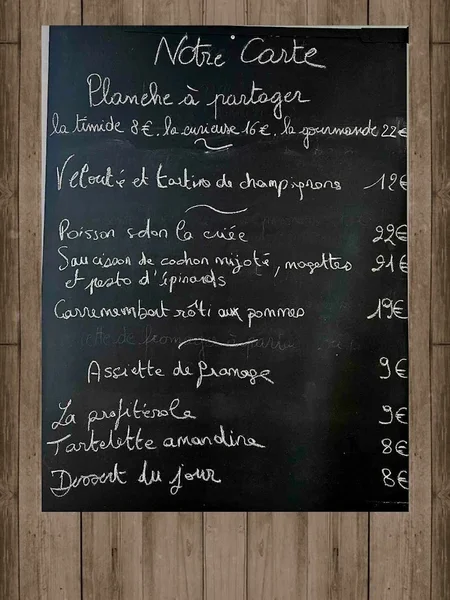 Notre Carte
Planche à partager
la timide 8€. la curieuse 16€. la gourmande 22€
Velouté et tartine de champignons 12€
Poisson selon la criée 22€
Saucisson de cochon mijoté, mogettes 21€
et pesto d'épinards
Carremembert rôti aux pommes 19€
Assiette de fromage 9€
La profiterole 9€
Tartelette amandine 8€
Dessert du jour 8€